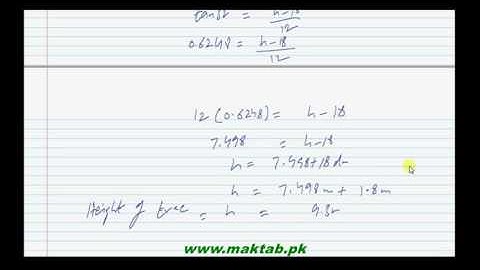 tan32 = h-18/12
0.6248 = h-18/12
12 (0.6248) = h-18
7.498 = h-18
h = 7.498+18 dm
h = 7.498m + 1.8m
Height of tree = h = 9.3m
www.maktab.pk